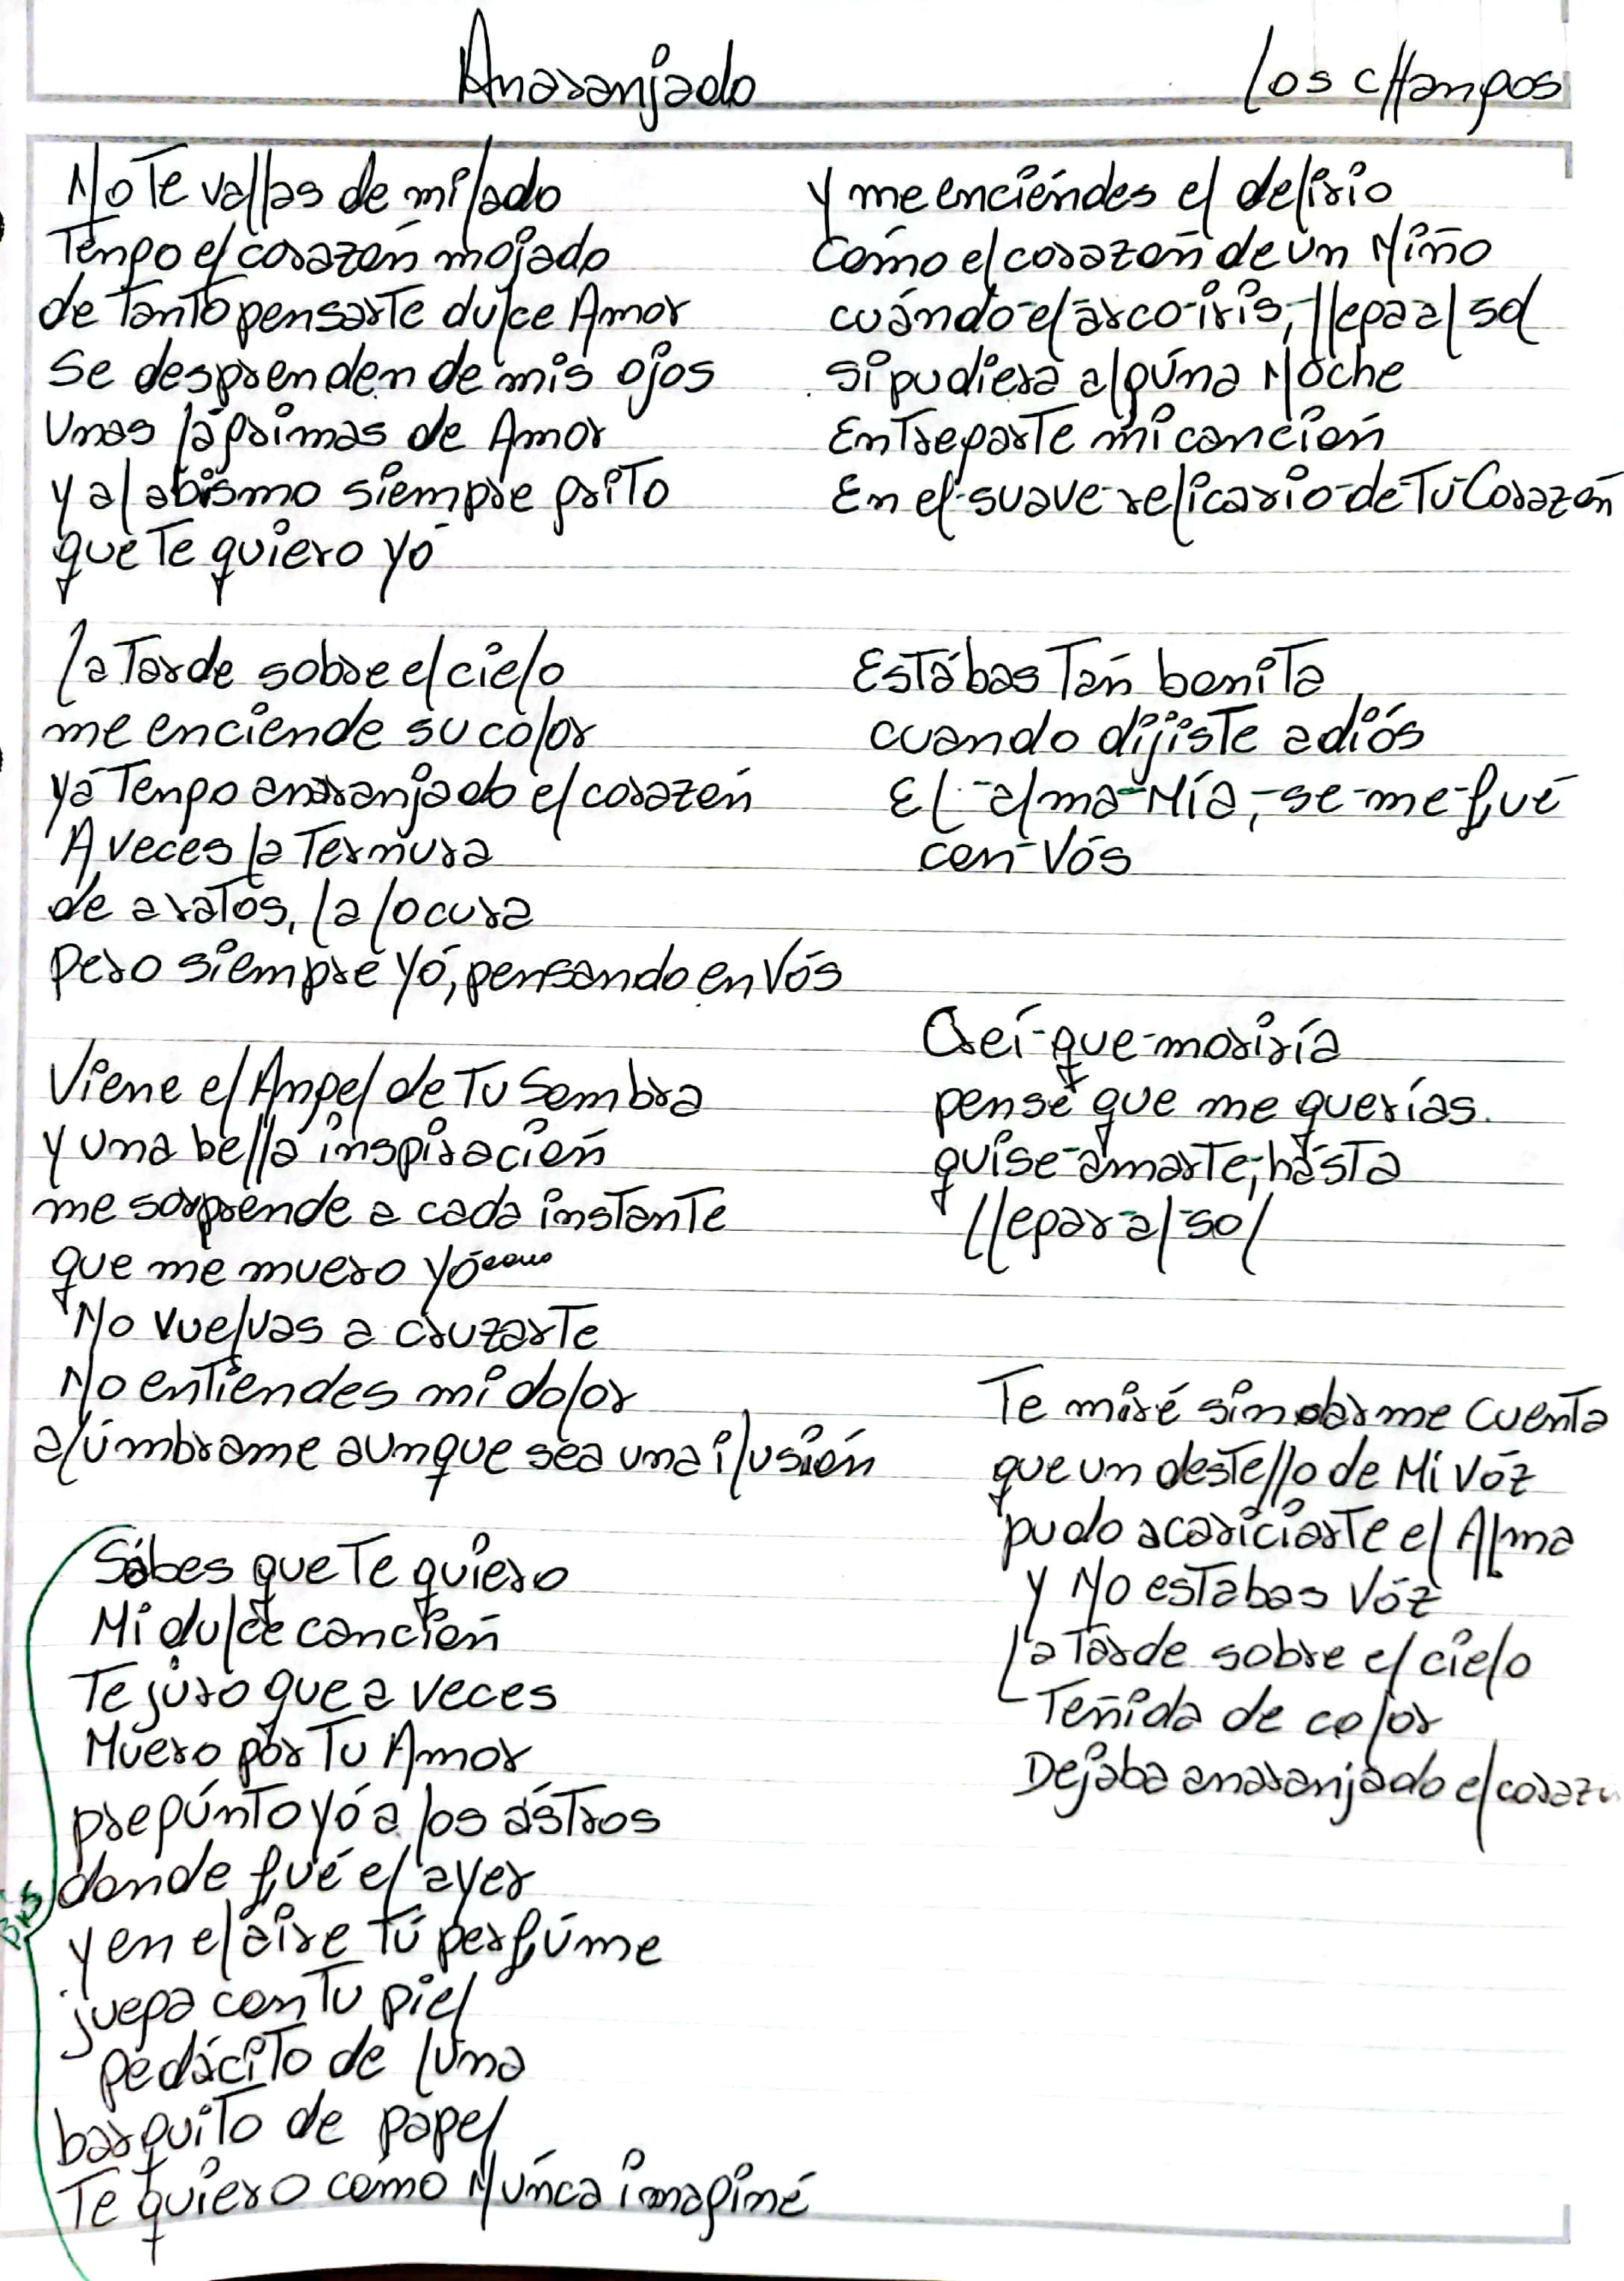 Anaranjado
los cHampos
No Te vallas de mi lado
Tengo el corazón mojado
de Tanto pensarte dulce Amor
se desprenden de mis ojos
Unas lágrimas de Amor
y al abismo siempre grito
que Te quiero yó
la Tarde sobre el cielo
me enciende su color
yá Tengo anaranjado el corazón
A veces la Ternura
de a ratos, la locura
pero siempre yó, pensando en Vós
Viene el Angel de Tu Sombra
y una bella inspiración
me sorprende a cada instante
que me muero yó
No vuelvas a cruzarte
No entiendes mi dolor
alúmbrame aunque sea una ilusión
Sábes que Te quiero
Mi dulce canción
Te júro que a veces
Muero por Tu Amor
pregúnto yó a los ástros
donde fué el ayer
y en el aire Tú perfúme
juega con Tu piel
pedácito de luna
barquito de papel
Te quiero cómo Núnca imaginé
Bis
y me enciéndes el delirio
Cómo el corazón de ún Niño
cuándo-el árco-iris,-llega al sol
si pudiera algúna Noche
Entregarte mi canción
En el-suave-relicario-de-Tú-Corazón
Estábas Tan bonita
cuando dijiste adiós
El-alma-Mía,-se-me-fué
con-Vós
Creí-que-moriría
pensé que me querías.
quise-amarte,-hásta
llegar-al-sol
Te miré sin darme Cuenta
que un destello de Mi Vóz
pudo acariciarte el Alma
y No estabas Vóz
La Tarde sobre el cielo
Teñida de color
Dejaba anaranjado el corazo